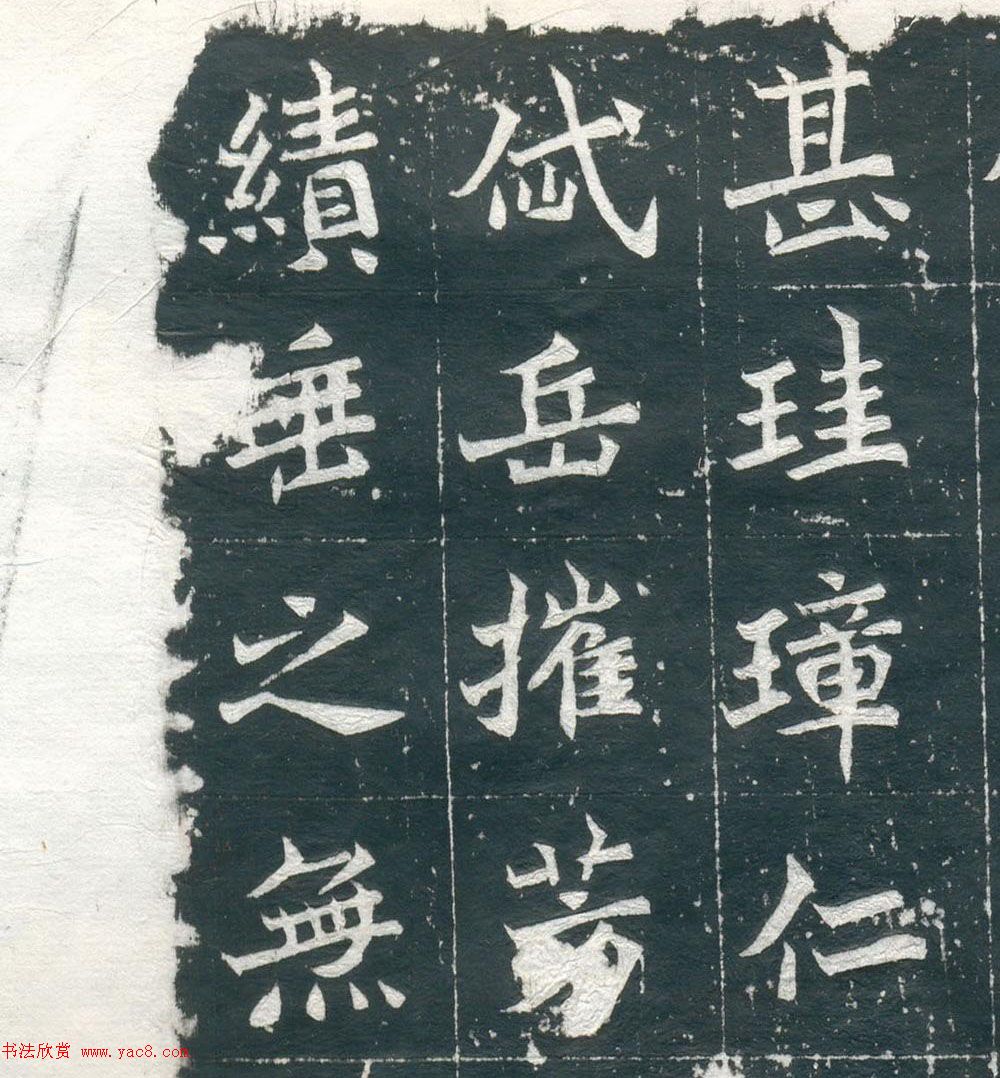 甚珪璋仁
岱岳摧芳
績垂之無
书法欣赏 www.yac8.com